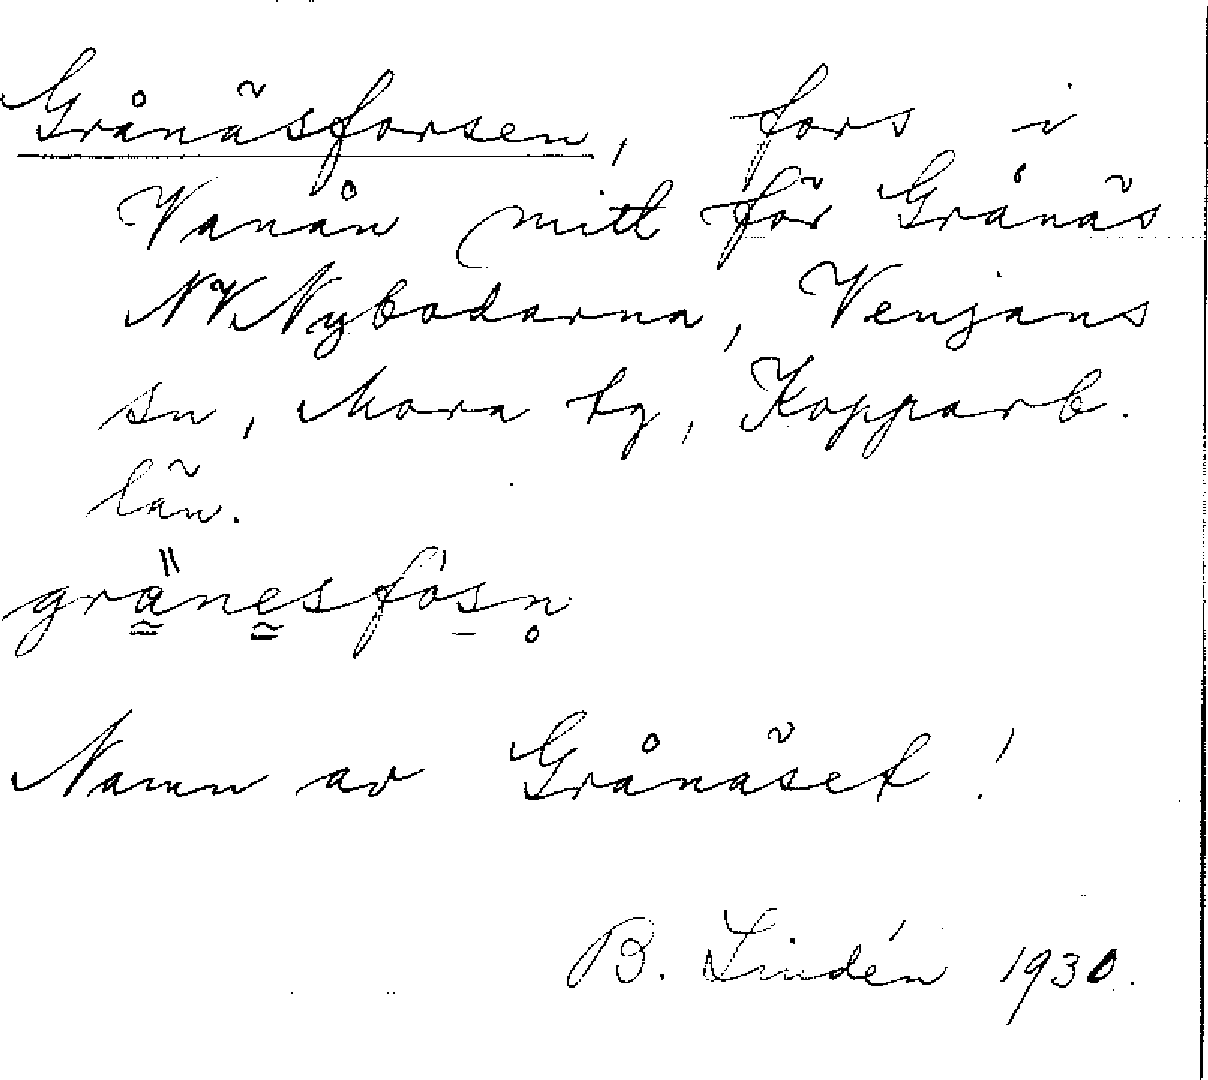 Grånäsforsen, fors i
Vanån mitt för Grånäs
NV Nybodarna, Venjans
sn, Mora tg, Kopparb.
län.
gränesfösn̥
Namn av Grånäset!
B. Lindén 1930.